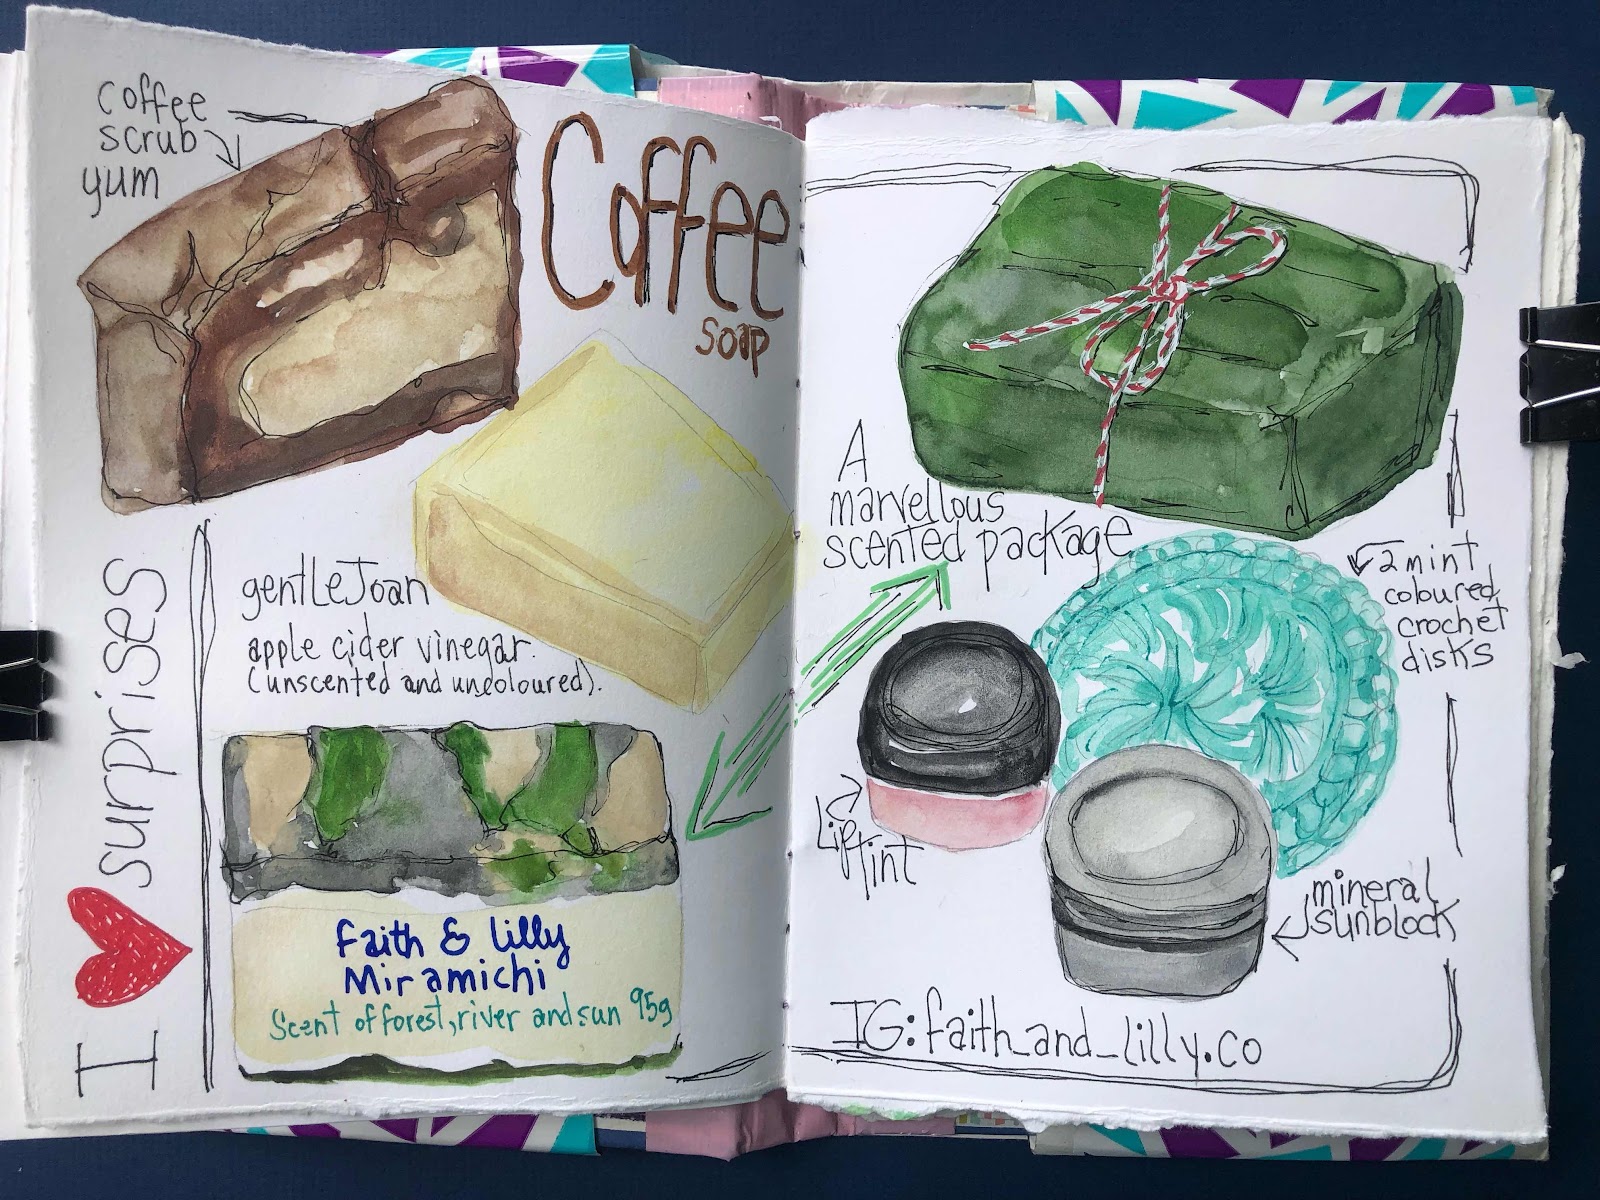 coffee
scrub
yum
Coffee
soap
I surprises
gentle Joan
apple cider vinegar.
(unscented and uncoloured).
Faith & Lilly
Miramichi
Scent of forest, river and sun 95g
A
marvellous
scented package
2 mint
coloured
crochet
disks
Lip
tint
mineral
sunblock
IG: faith_and_lilly.co